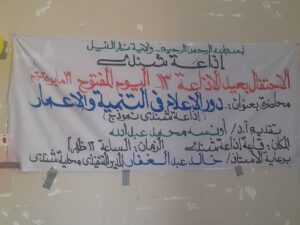 بسم الله الرحمن الرحيم - ولاية نهر النيل
إذاعة شندي
الاحتفال بعيد الإذاعة ١٣ اليوم المفتوح ١٩ مايو
محاضرة بعنوان: دور الإعلام في التنمية والإعمار
(إذاعة شندي نموذج)
تقديم أ.د/ أونسه محمد عبدالله
المكان: قاعة إذاعة شندي الزمان: الساعة ١٢ ظهراً
برعاية الأستاذ/ خالد عبدالغفار المدير التنفيذي محلية شندي